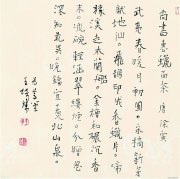 尚書惠蠟面茶 唐 徐寅
武夷春暖月初圓采摘新芽
獻地仙飛鵲印成香蠟片啼
猿溪走木蘭船金槽和碾沉香
末冰碗輕涵翠縷煙分贈恩
深知最異晚鐺宜煮北山泉